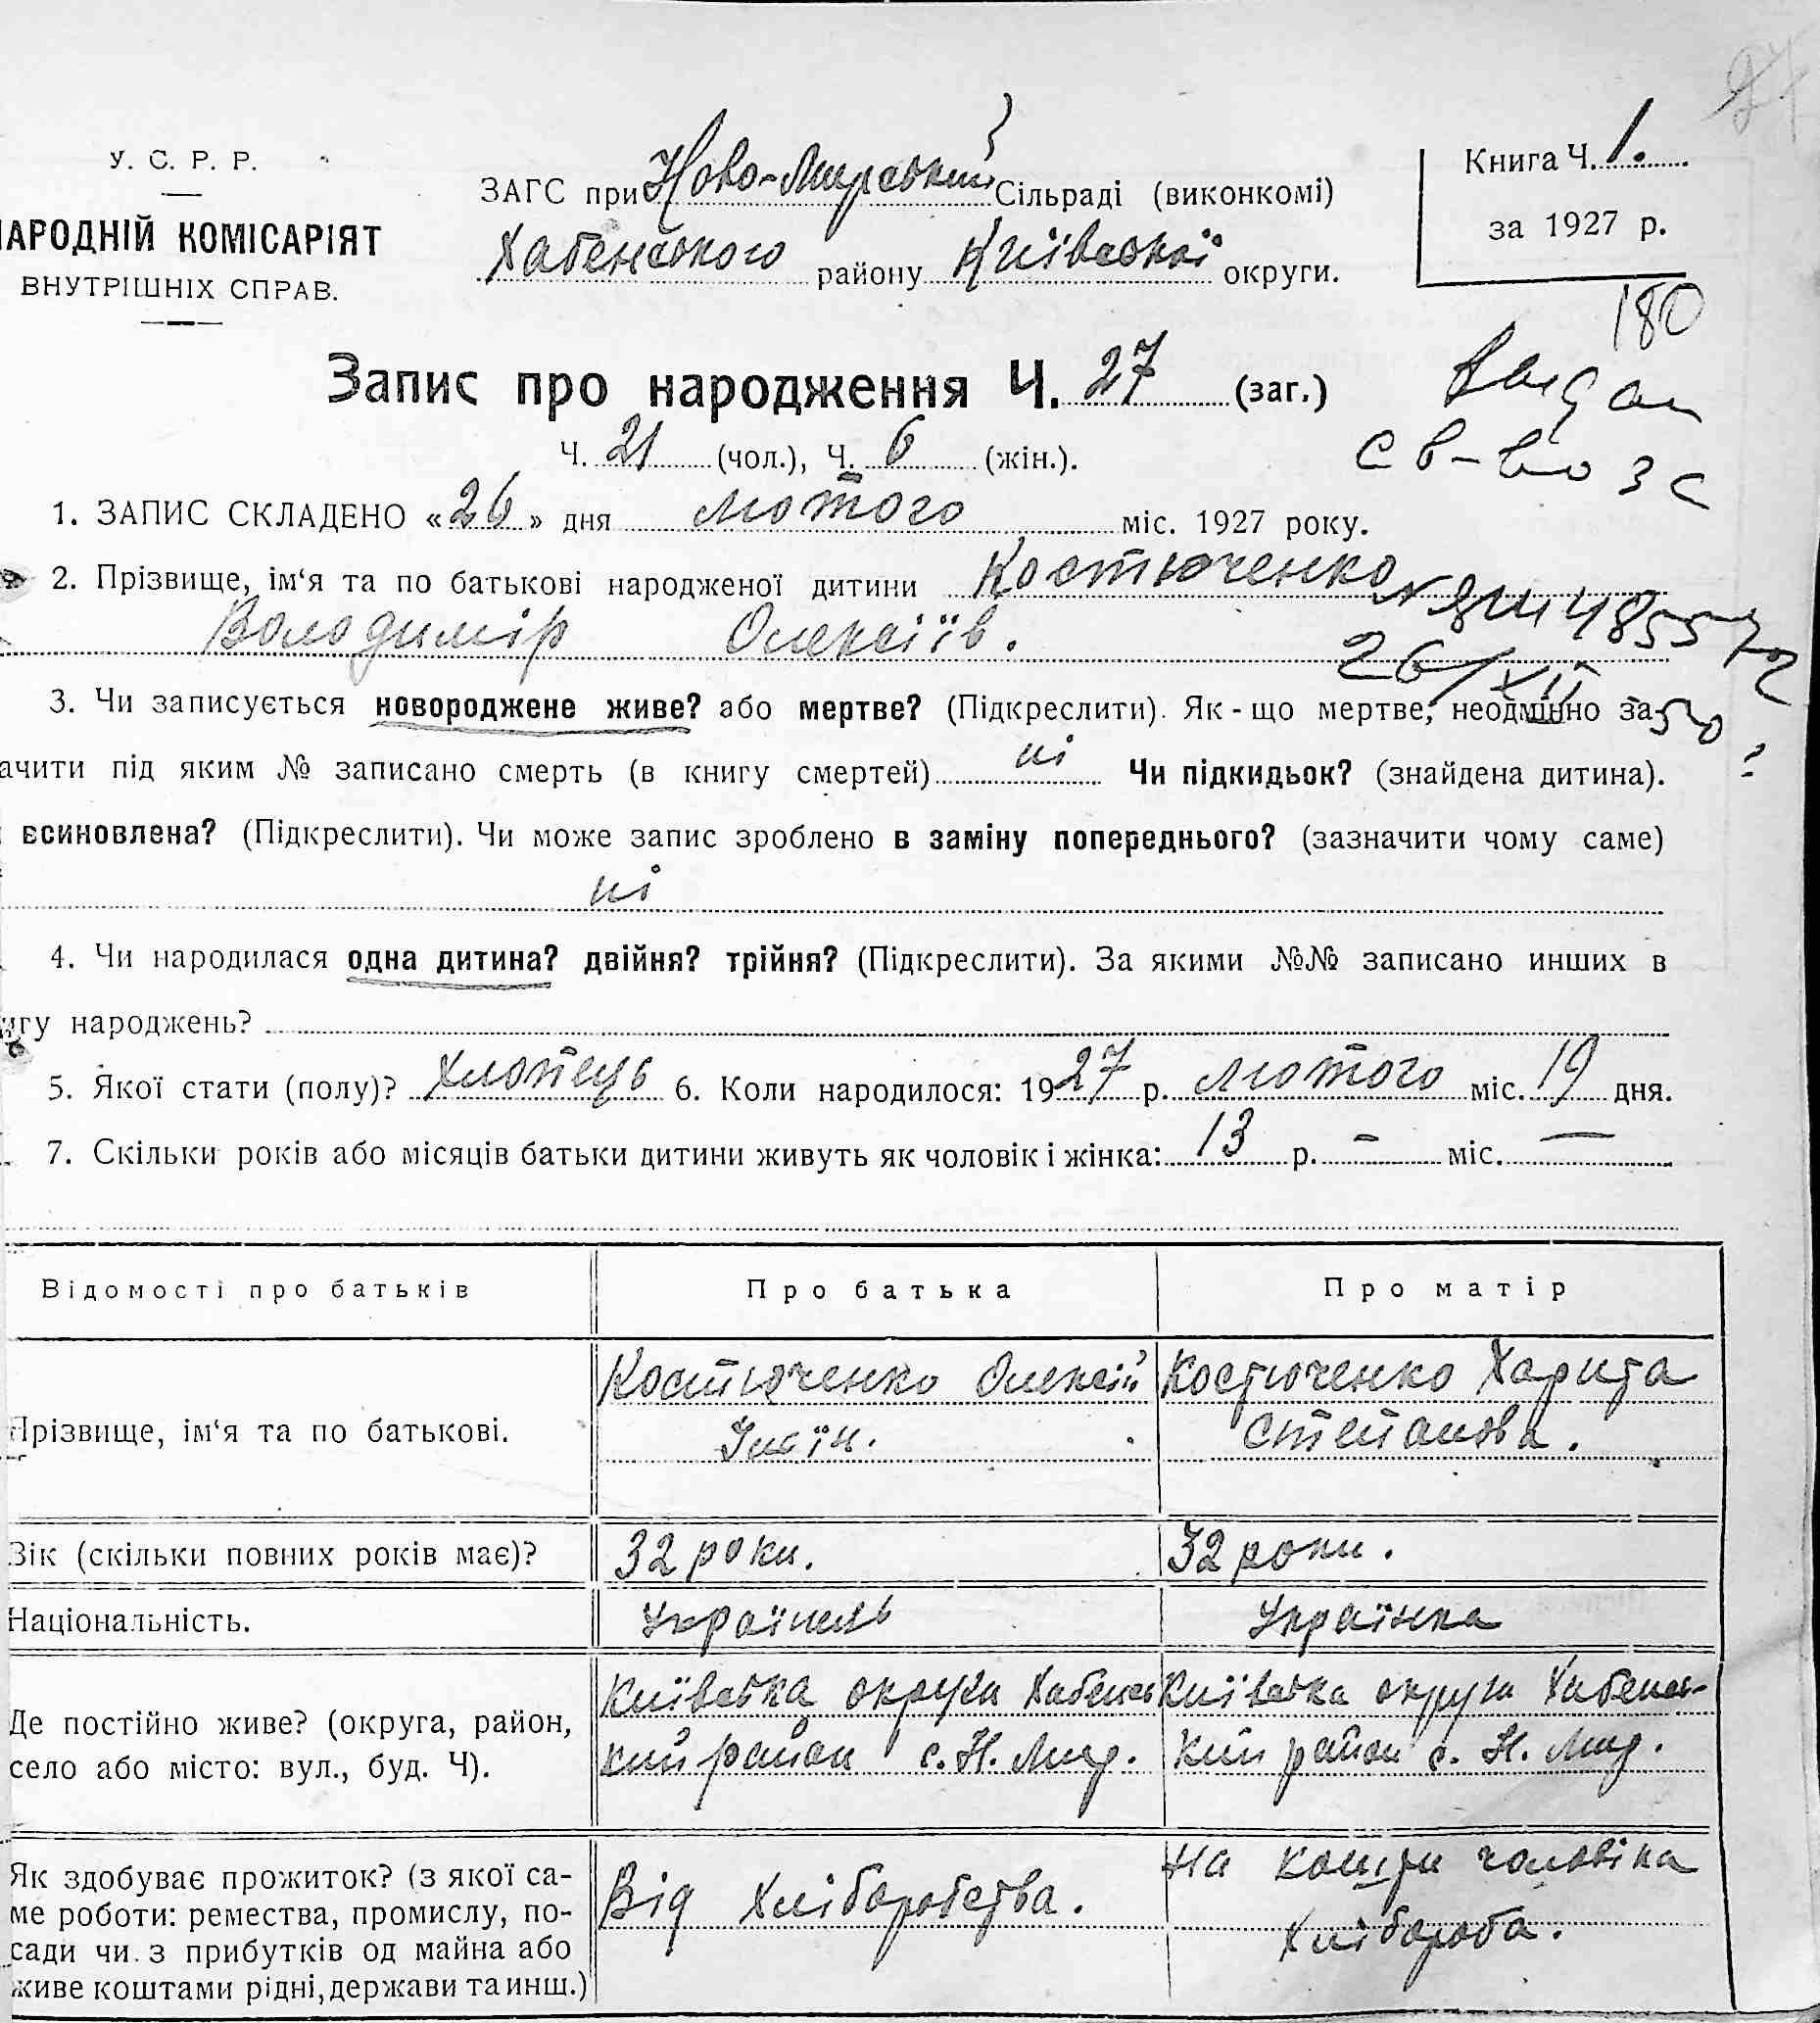 У. С. Р. Р.
НАРОДНІЙ КОМІСАРІЯТ
ВНУТРІШНІХ СПРАВ.
ЗАГС при Ново-Мирський Сільраді (виконкомі)
Хабенського району Київської округи.
Книга Ч. 1.
за 1927 р.
180
Запис про народження Ч. 27 (заг.)
Ч. 21 (чол.), Ч. 6 (жін.).
выдан
св-во зс
1. ЗАПИС СКЛАДЕНО «26» дня лютого міс. 1927 року.
2. Прізвище, ім‘я та по батькові народженої дитини Костюченко
Володимір Олексіїв.
26/XII
50
3. Чи записується новороджене живе? або мертве? (Підкреслити). Як-що мертве, неодмінно за-
ачити під яким № записано смерть (в книгу смертей) ні Чи підкидьок? (знайдена дитина).
всиновлена? (Підкреслити). Чи може запис зроблено в заміну попереднього? (зазначити чому саме)
ні
4. Чи народилася одна дитина? двійня? трійня? (Підкреслити). За якими №№ записано инших в
игу народжень?
5. Якої стати (полу)? Хлопець 6. Коли народилося: 1927 р. лютого міс. 19 дня.
7. Скільки років або місяців батьки дитини живуть як чоловік і жінка: 13 р. — міс. —
Відомості про батьків Про батька Про матір
Прізвище, ім‘я та по батькові. Костюченко Олексій Костюченко Харита
Степанова.
Вік (скільки повних років має)? 32 роки. 32 роки.
Національність. Українець Українка
Де постійно живе? (округа, район,
село або місто: вул., буд. Ч).
Київська округи Хабенсь Київська округи Хабенсь-
кий район с. Н. Мир. кий район с. Н. Мир.
Як здобуває прожиток? (з якої са-
ме роботи: ремества, промислу, по-
сади чи з прибутків од майна або
живе коштами рідні, держави та инш.)
Від Хліборобства. На кошти чоловіка
Хлібороба.